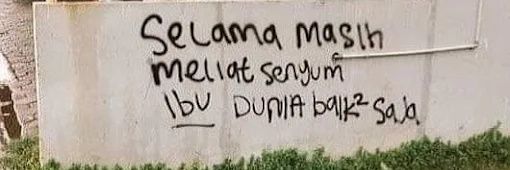 Selama masih
meliat senyum
Ibu DUNIA baik² saja